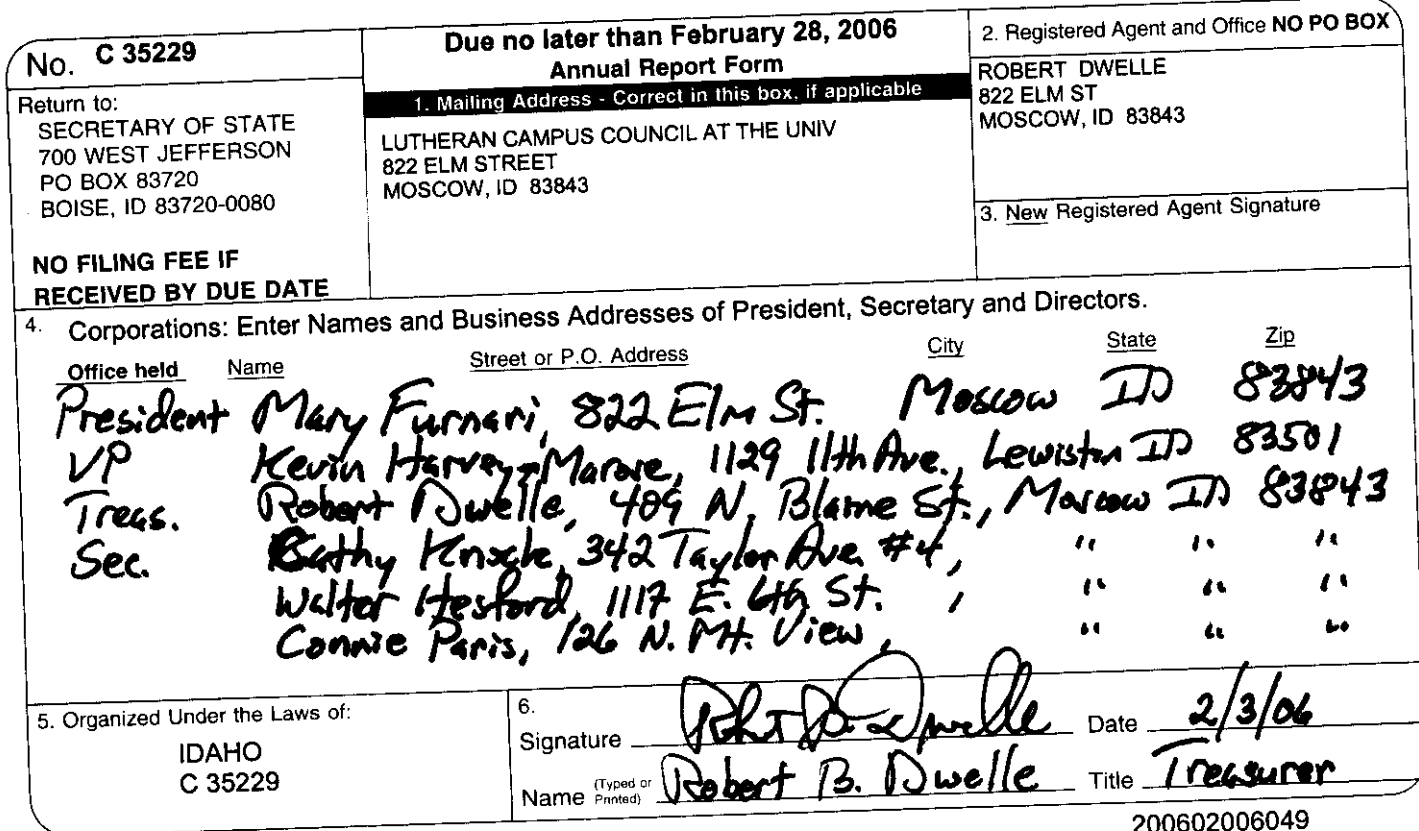 No. C 35229
Return to:
SECRETARY OF STATE
700 WEST JEFFERSON
PO BOX 83720
BOISE, ID 83720-0080
NO FILING FEE IF
RECEIVED BY DUE DATE
Due no later than February 28, 2006
Annual Report Form
1. Mailing Address - Correct in this box, if applicable
LUTHERAN CAMPUS COUNCIL AT THE UNIV
822 ELM STREET
MOSCOW, ID 83843
2. Registered Agent and Office NO PO BOX
ROBERT DWELLE
822 ELM ST
MOSCOW, ID 83843
3. New Registered Agent Signature
4. Corporations: Enter Names and Business Addresses of President, Secretary and Directors.
Office held Name Street or P.O. Address City State Zip
President Mary Furnari, 822 Elm St. Moscow ID 83843
VP Kevin Harvey-Marose, 1129 11th Ave., Lewiston ID 83501
Treas. Robert Dwelle, 409 N. Blaine St., Moscow ID 83843
Sec. Cathy 342 Taylor Ave #4, " " "
Walter Hesford, 1117 E. 6th St. , " " "
Connie Paris, 126 N. Mt. View, " " "
5. Organized Under the Laws of:
IDAHO
C 35229
6.
Signature Robert B. Dwelle Date 2/3/06
Name (Typed or Printed) Robert B. Dwelle Title Treasurer
200602006049